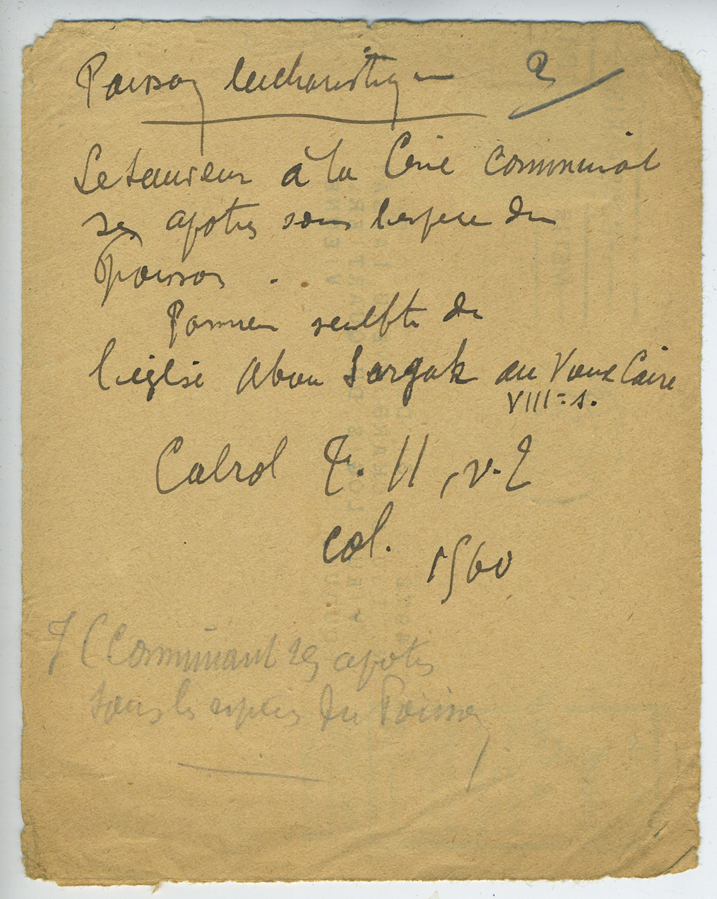 Poisson Eucharistique 2
Le Sauveur à la Cène communiant
ses apotres sous l'espece du
poisson.
Panneau sculpté de
l'église Abou Sargah au Vieux Caire
VIIIe s.
Cabrol T. II, v. 2
col. 1960
J C Communiant ses apotres
sous les espèces du Poisson